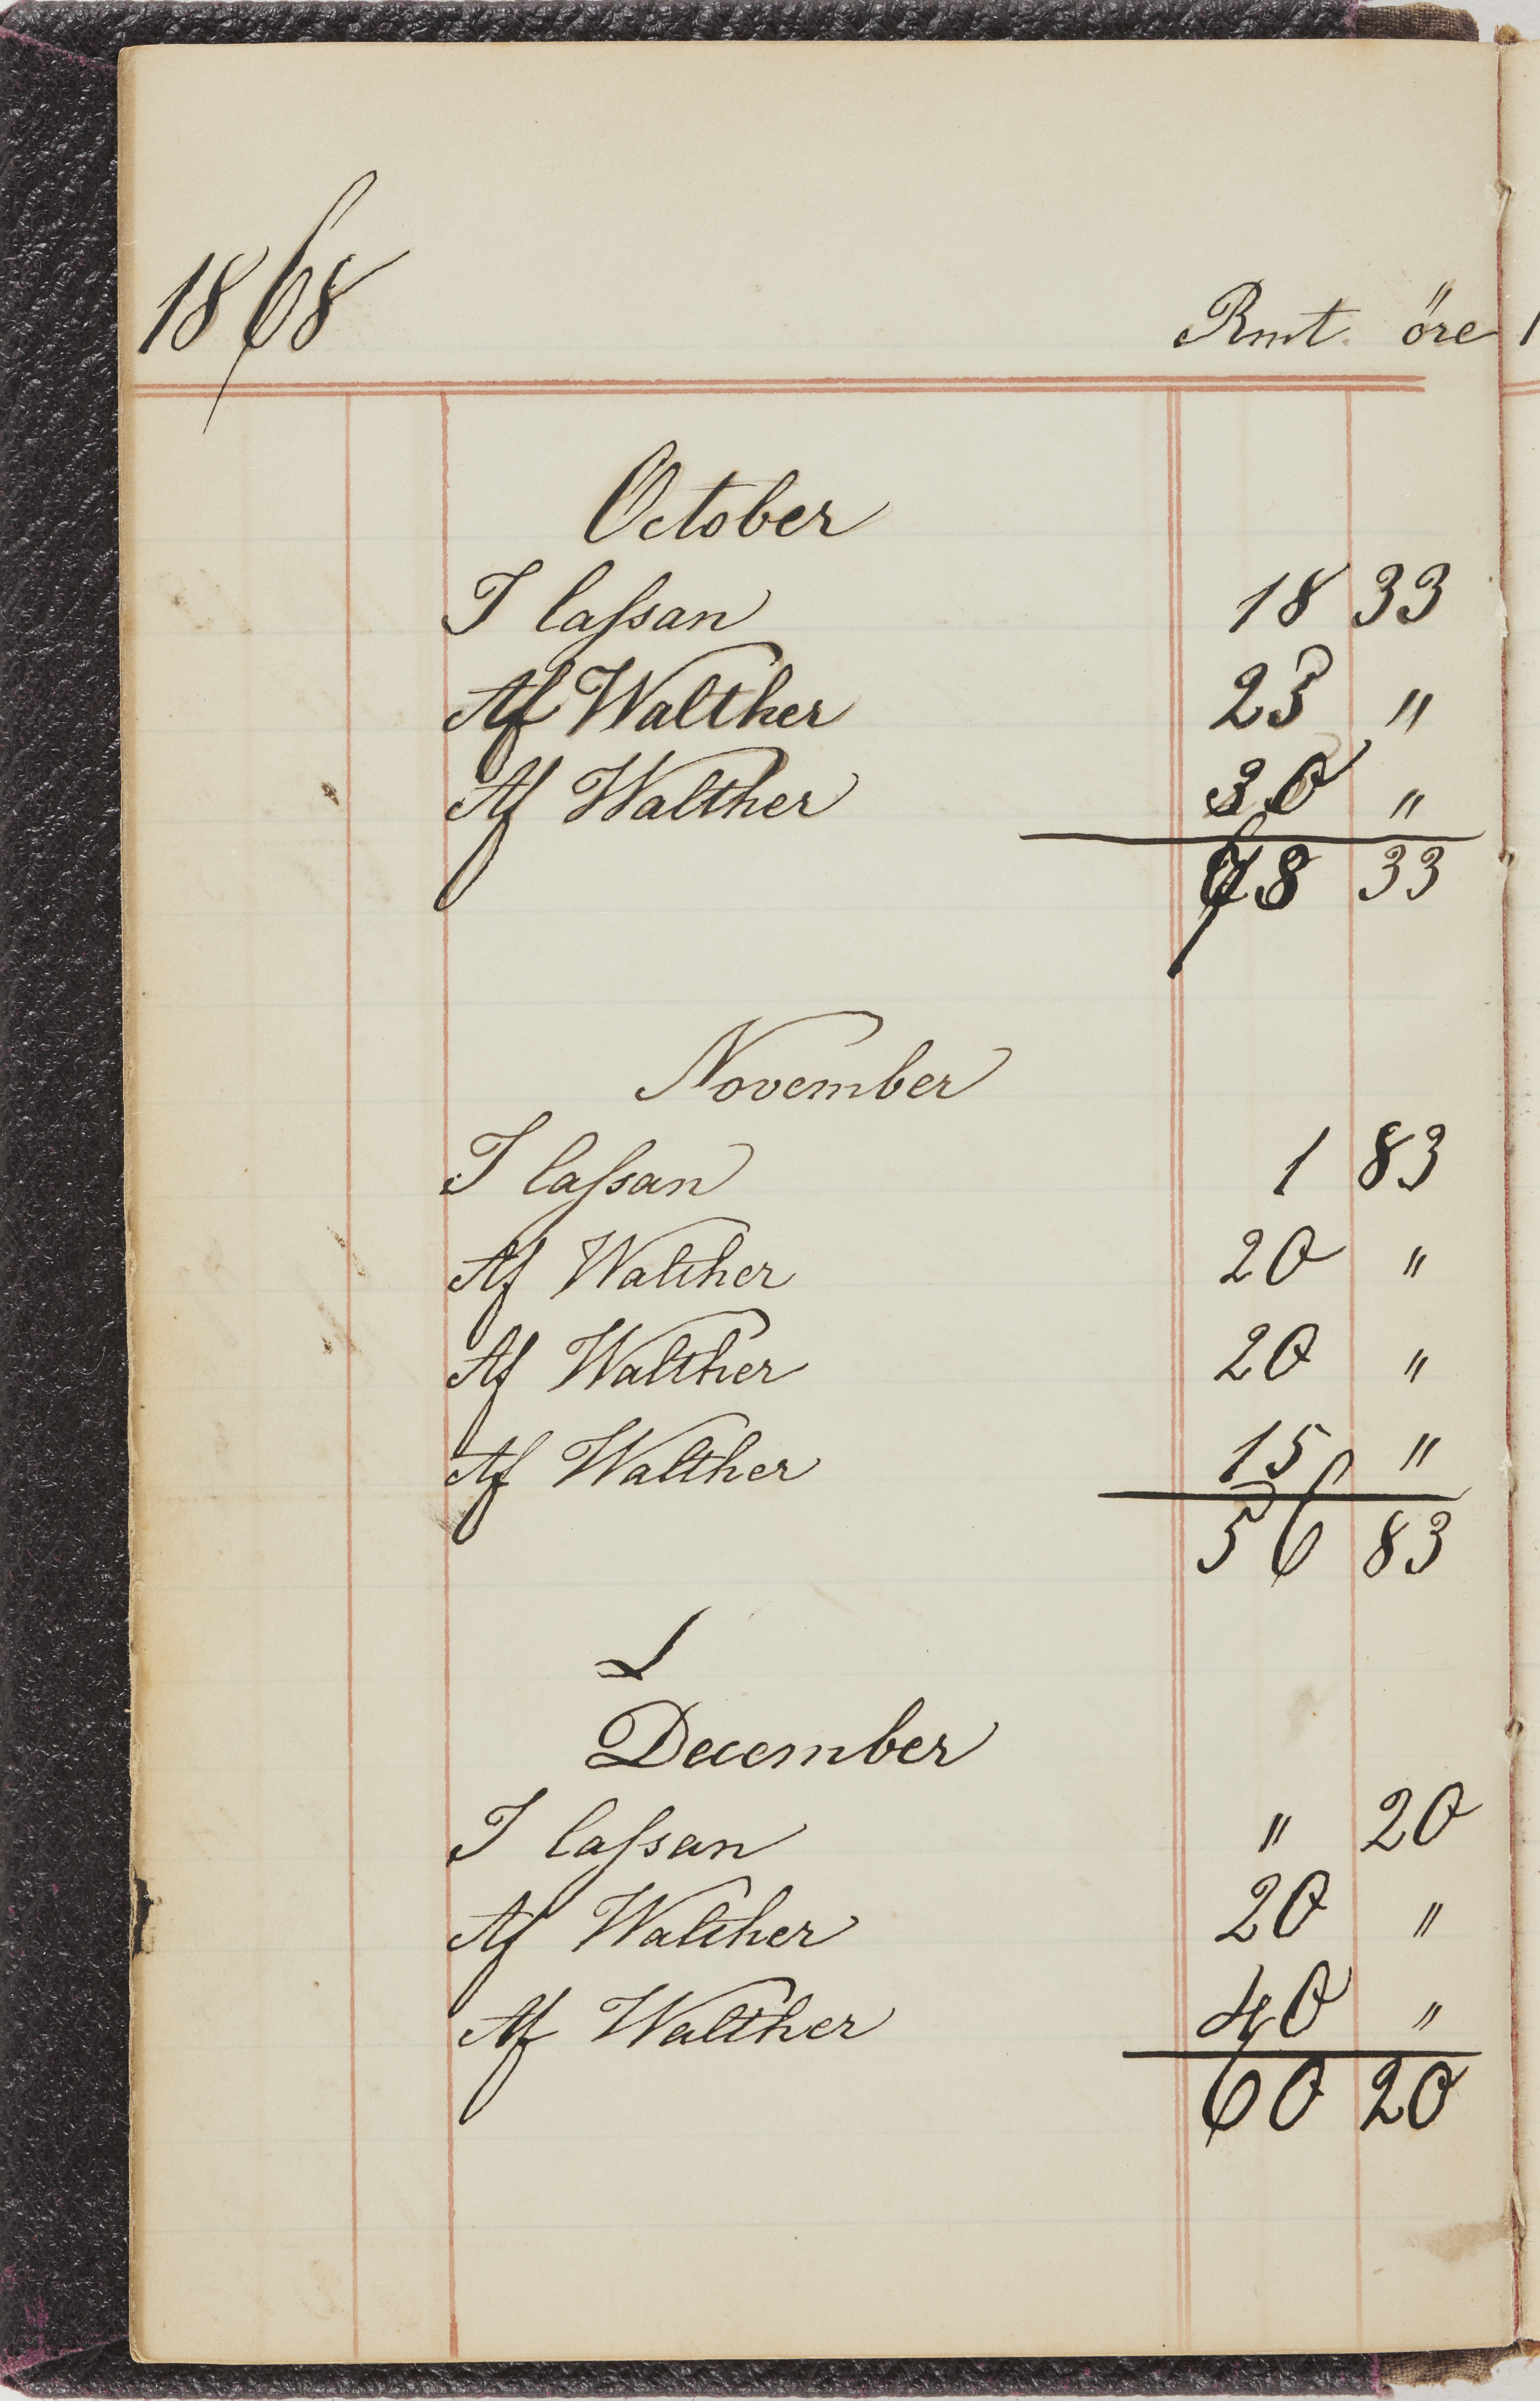 1868
Rmt. öre
October
I Cassan 18 33
Af Walther "
Af Walther 30 "
33
November
I Cassan 1 83
Af Walther 20 "
Af Walther 20 "
Af Walther 15 "
56 83
December
I Cassan " 20
Af Walther 20 "
Af Walther 40 "
60 20